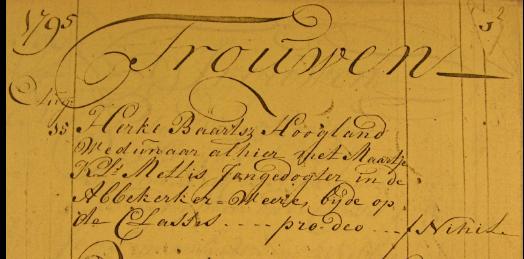 1795
Trouwen
J
Aug
15 Herke Baartsz Hoogland
Weduwnaar alhier met Maartje
Kls Mettis Jongedogter in de
Abbekerker-Weere, byde op
de Classis .... pro-deo ... f Nihil